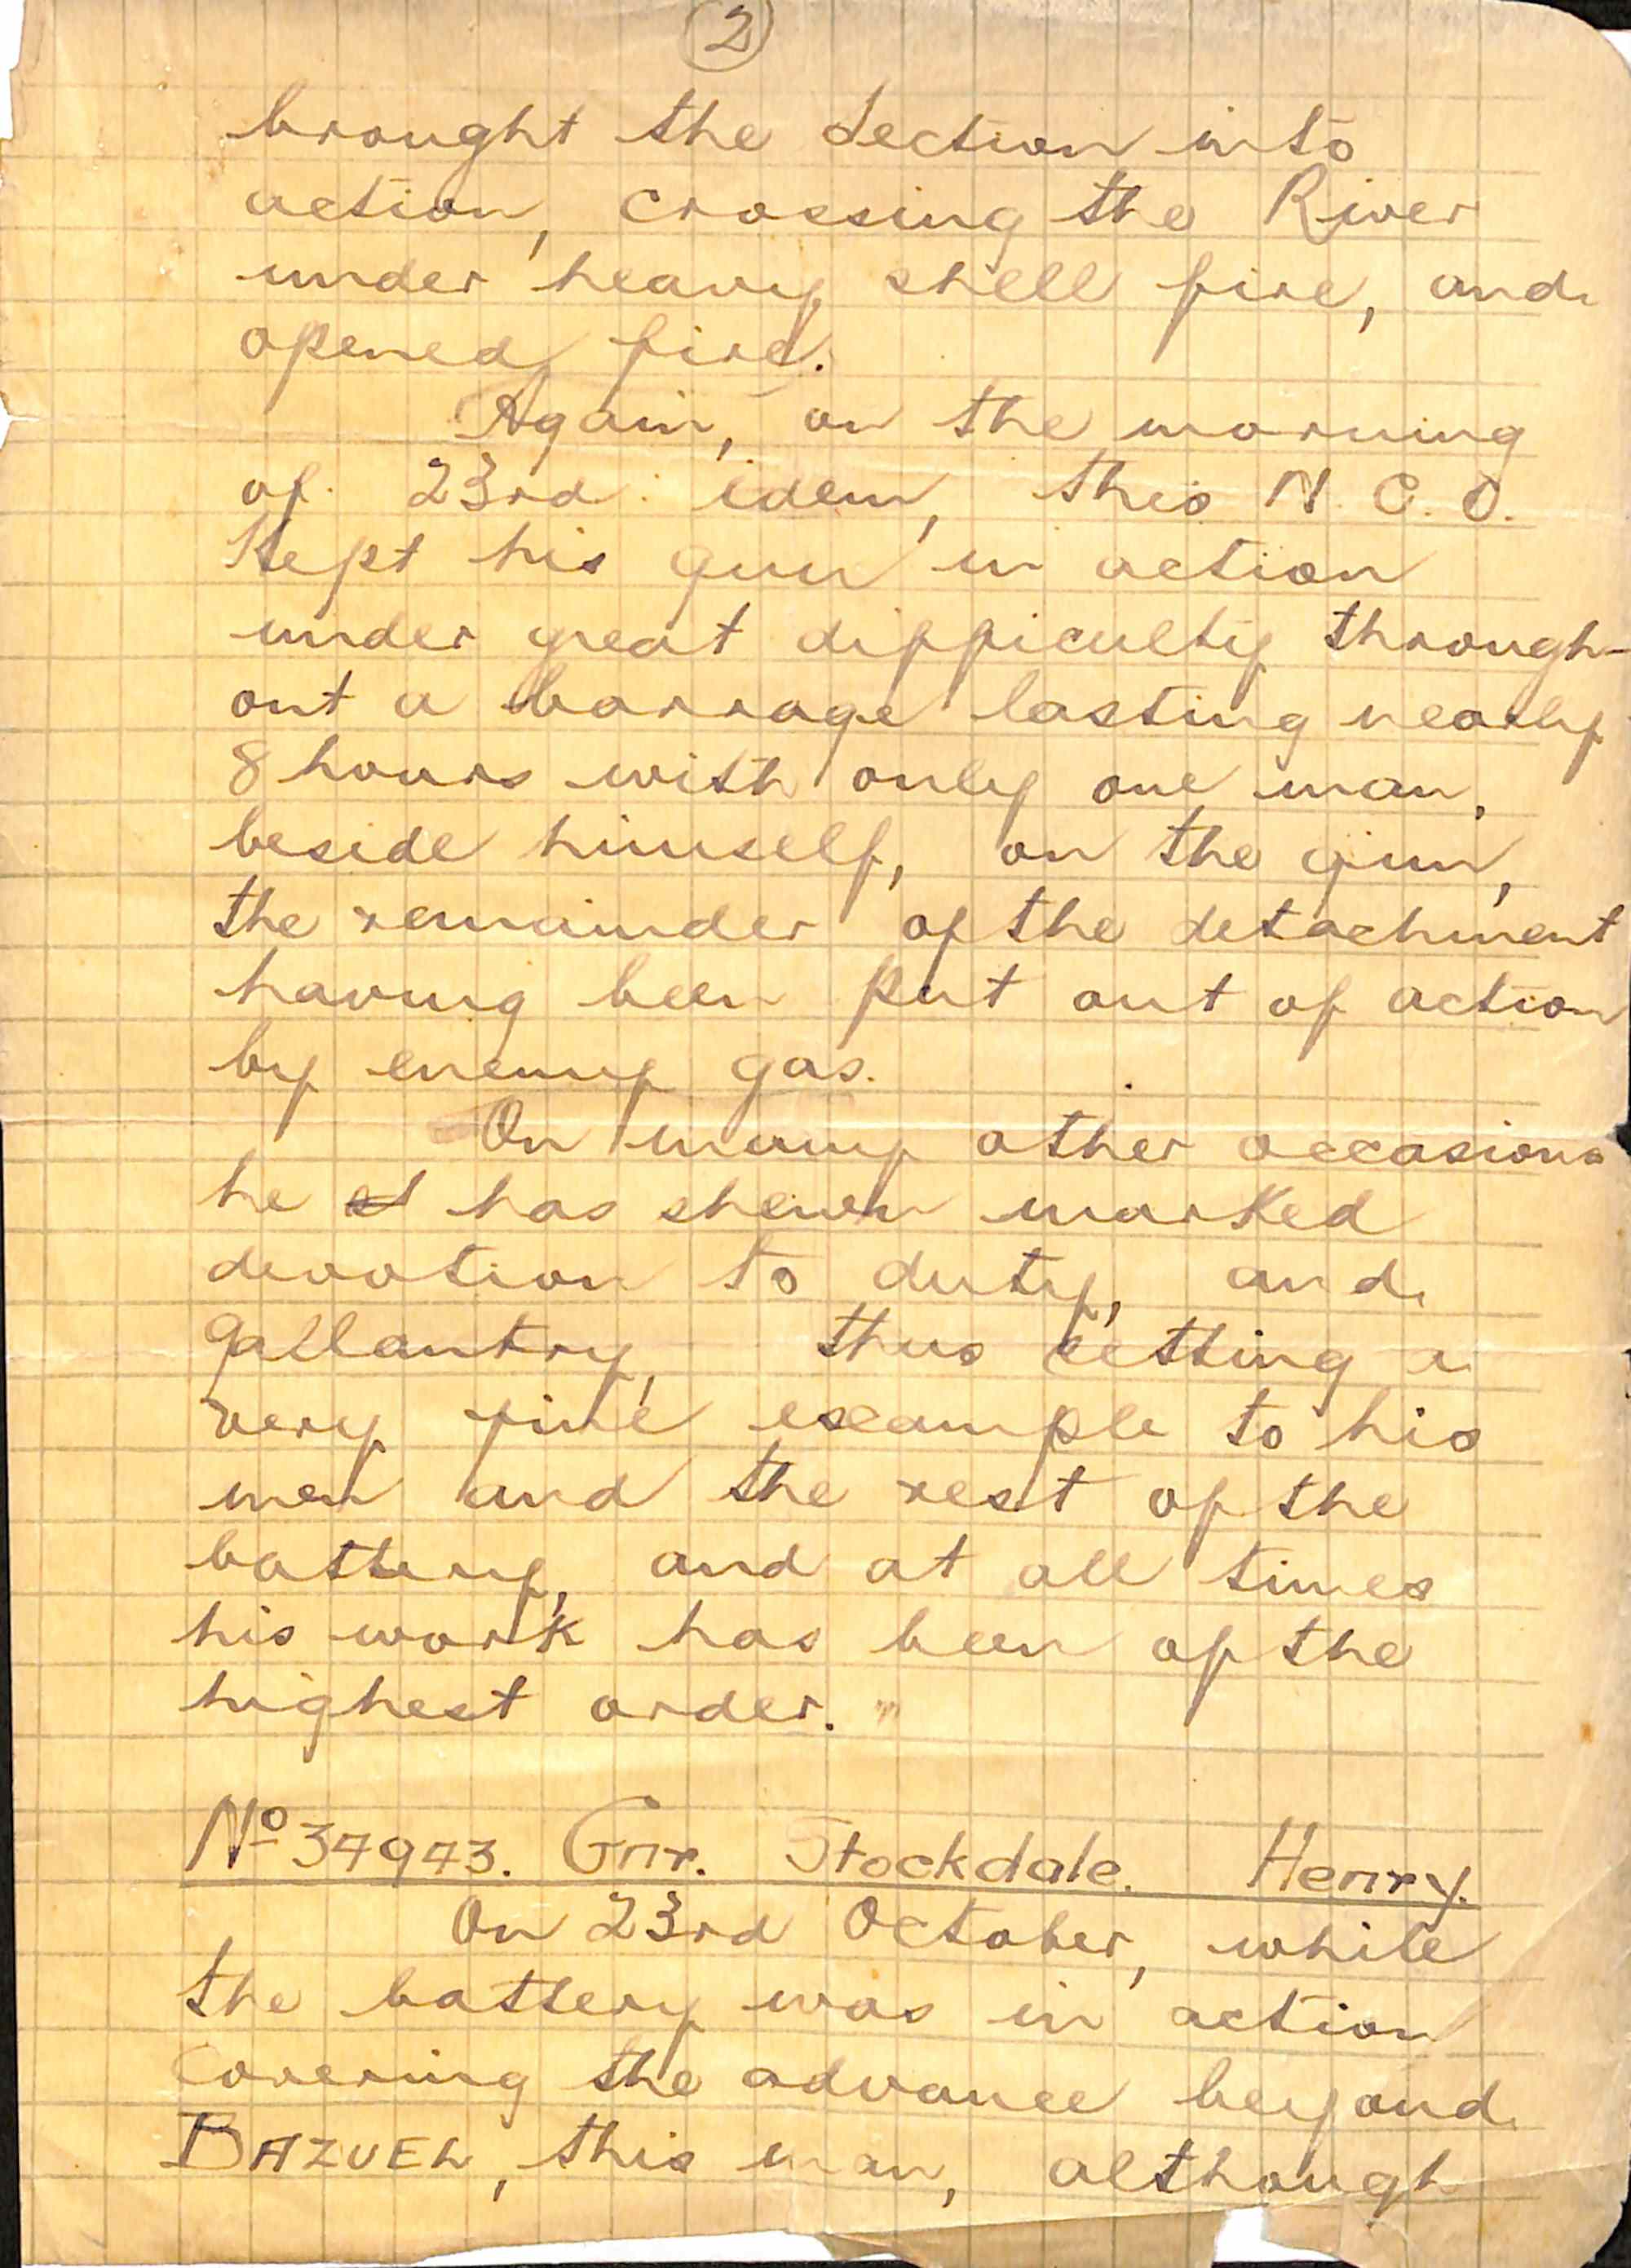 2
brought the Section into
action, crossing the River
under heavy shell fire, and
opened fire.
Again, on the morning
of 23rd idem, this N.C.O.
Kept his gun in action
under great difficulty through-
out a barrage lasting nearly
8 hours with only one man,
beside himself, on the gun,
the remainder of the detachment
having been put out of action
by enemy gas.
On many other occasions
he has shewn marked
devotion to duty, and
gallantry, thus setting a
very fine example to his
men and the rest of the
battery, and at all times
his work has been of the
highest order.
No 34943. Gnr. Stockdale. Henry.
On 23rd October, while
the battery was in action
covering the advance beyond
BAZUEL, this man, although